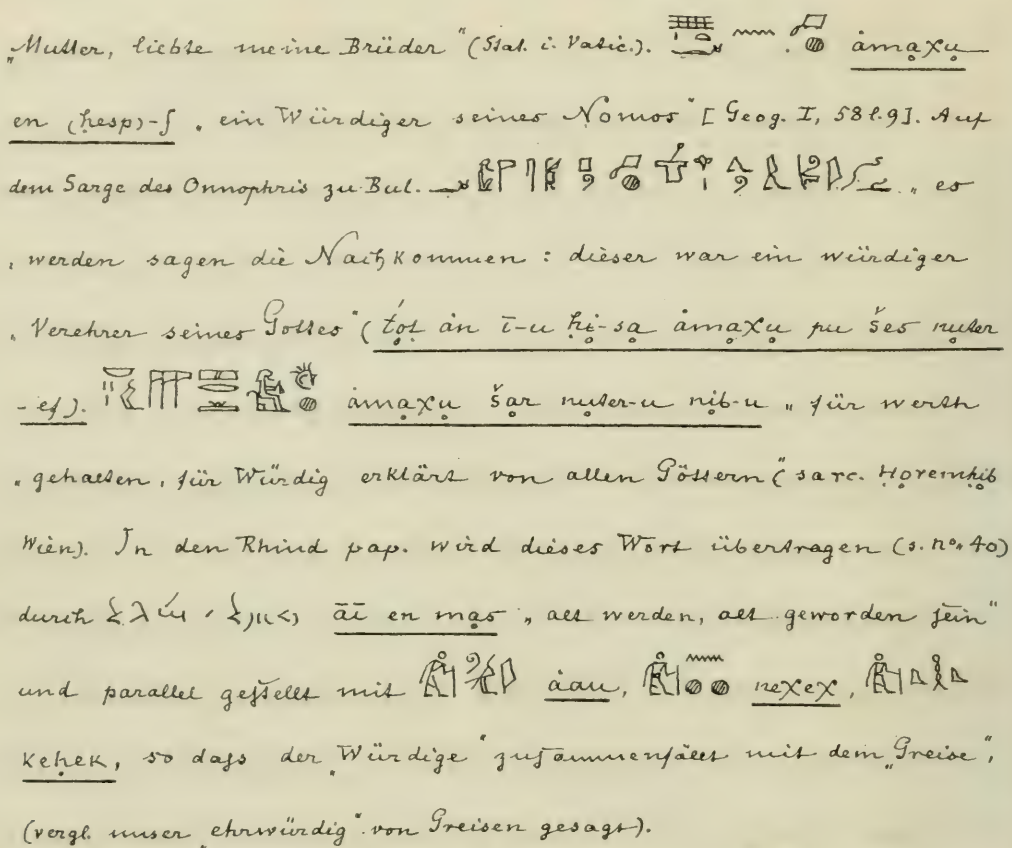 „Mutter, liebte meine Brüder“ (Stat. i. Vatic.). åmaχu
en (ḥesp)-f „ein Würdiger seines Nomos“ [Geog. I, 58 l. 9]. Auf
dem Sarge des Onnophris zu Bul. „es
„werden sagen die Nachkommen: dieser war ein würdiger
„Verehrer seines Gottes“ (t́ot ån ī-u ḥi-sa åmaχu pu šes nuter
-ef). åmaχu šar nuter-u nib-u „für werth
„gehalten, für Würdig erklärt von allen Göttern“ (sarc. Horemhib
Wien). In den Rhind pap. wird dieses Wort übertragen (s. no. 40)
durch āī en mas „alt werden, alt geworden sein“
und parallel gestellt mit åau, neχeχ,
keḥek, so dass der „Würdige“ zusammenfällt mit dem „Greise“,
(vergl. unser „ehrwürdig“ von Greisen gesagt).